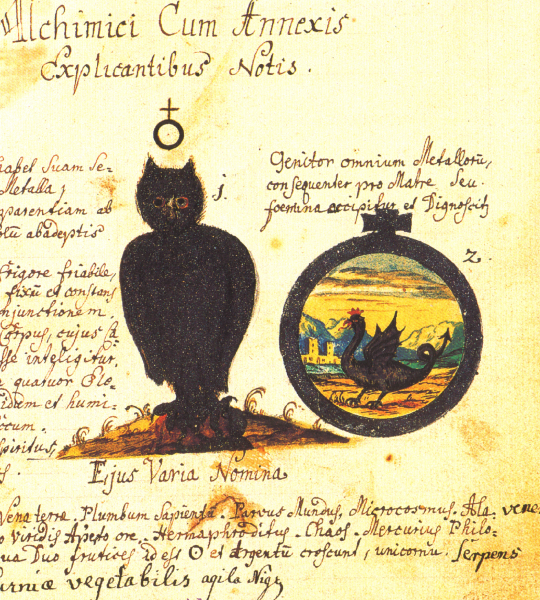 Alchimici Cum Annexis
Explicantibus Notis.
Suam Se-
Metalla;
ab
abadeptis
Frigore friabile,
fixũ et constans
njunctionem
Corpus, cujus
sse inteligitur,
quatuor Ele-
idum et humi-
ccum.
spiritus,
1.
Genitor omnium Metallorũ,
consequenter pro Matre Seu
foemina accipitur et Dignoscitz
2.
Ejus Varia Nomina
Vena terræ. Plumbum Sapientũ. Parvus Mundus, Microcosmus. Ala. vene
o Viridis Aperto ore. Hermaphroditus. Chaos. Mercurius Philo-
ua Duo frutices id est ☉ et argentũ crescunt, unicornu. Serpens
urniæ vegetabilis aqila Nigz